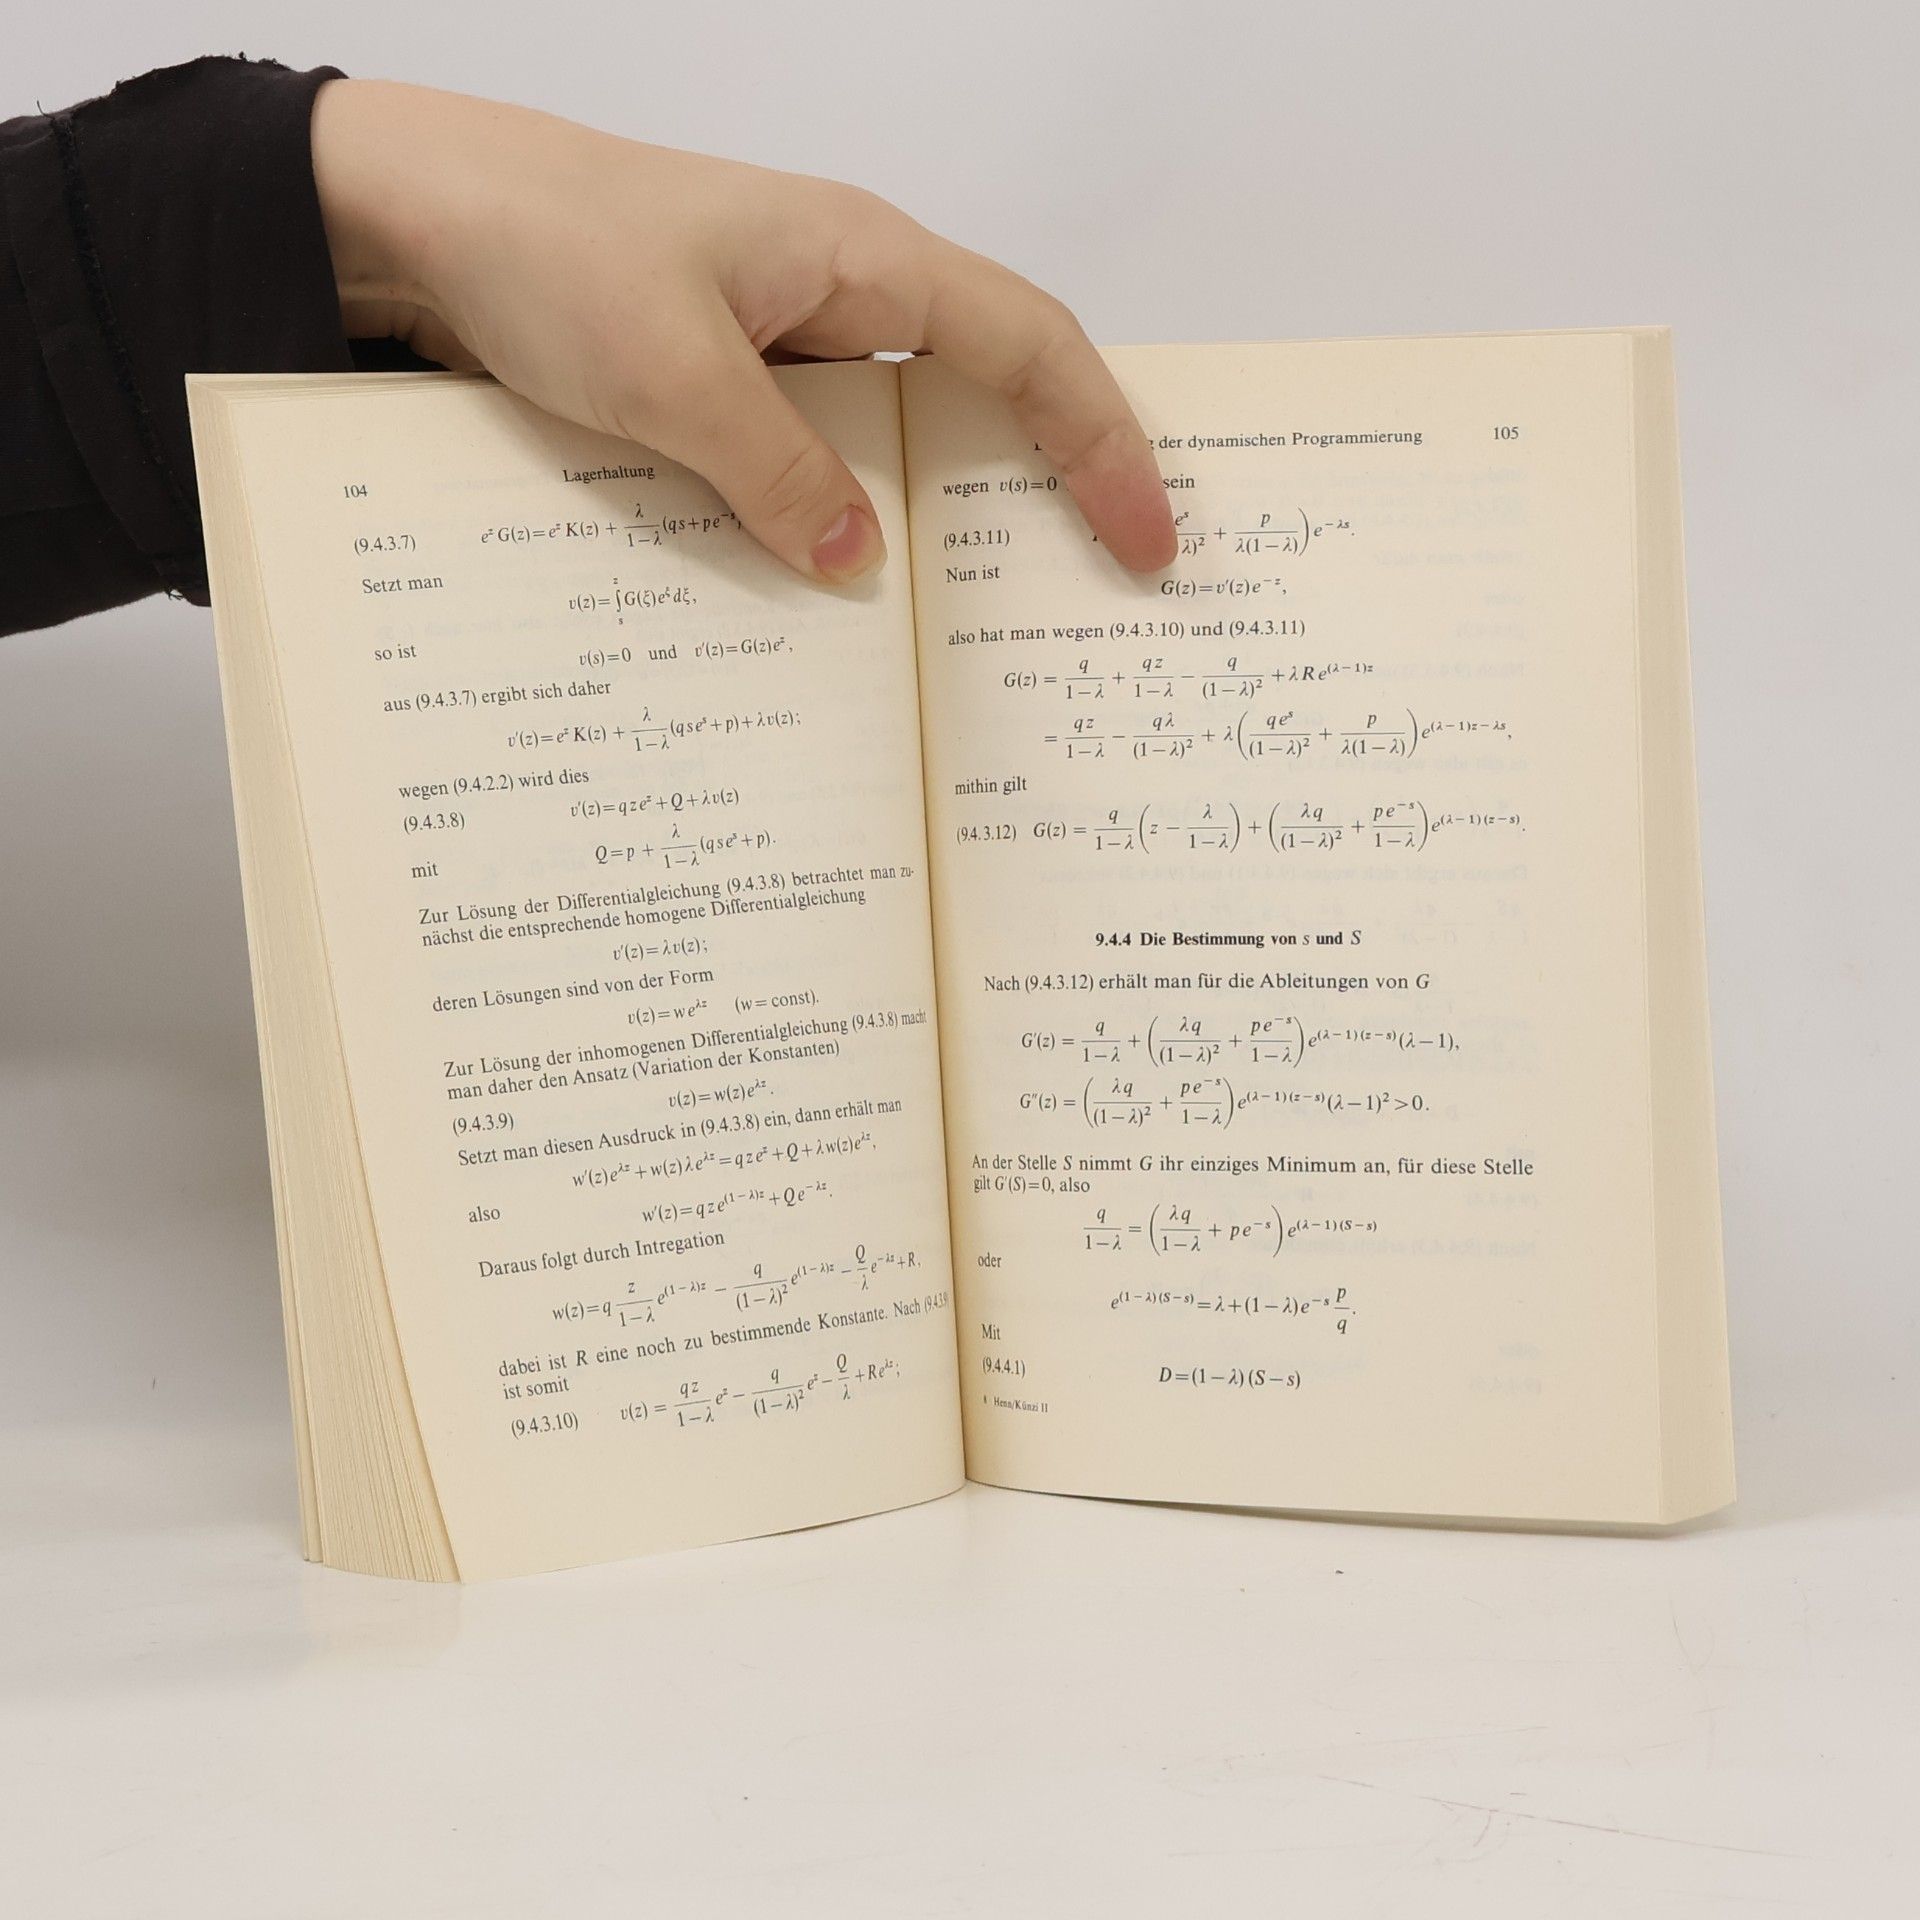 104 Lagerhaltung
(9.4.3.7) e^z G(z)=e^z K(z) + λ/(1−λ) (qs+pe^−s
Setzt man
v(z)=∫_s^z G(ξ)e^ξ dξ,
so ist v(s)=0 und v′(z)=G(z)e^z,
aus (9.4.3.7) ergibt sich daher
v′(z)=e^z K(z) + λ/(1−λ) (qse^s+p)+λv(z);
wegen (9.4.2.2) wird dies
(9.4.3.8) v′(z)=qze^z+Q+λv(z)
mit Q=p + λ/(1−λ) (qse^s+p).
Zur Lösung der Differentialgleichung (9.4.3.8) betrachtet man zu-
nächst die entsprechende homogene Differentialgleichung
v′(z)=λv(z);
deren Lösungen sind von der Form
v(z)=we^λz (w=const).
Zur Lösung der inhomogenen Differentialgleichung (9.4.3.8) macht
man daher den Ansatz (Variation der Konstanten)
(9.4.3.9) v(z)=w(z)e^λz.
Setzt man diesen Ausdruck in (9.4.3.8) ein, dann erhält man
w′(z)e^λz+w(z)λe^λz=qze^z+Q+λw(z)e^λz,
also w′(z)=qze^(1−λ)z+Qe^−λz.
Daraus folgt durch Intregation
w(z)=q z/(1−λ) e^(1−λ)z − q/(1−λ)² e^(1−λ)z − Q/λ e^−λz+R,
dabei ist R eine noch zu bestimmende Konstante. Nach (9.4.3.9)
ist somit
(9.4.3.10) v(z) = qz/(1−λ) e^z − q/(1−λ)² e^z − Q/λ +Re^λz;
der dynamischen Programmierung 105
wegen v(s)=0 sein
(9.4.3.11) e^s/λ)² + p/(λ(1−λ))) e^−λs.
Nun ist
G(z)=v′(z)e^−z,
also hat man wegen (9.4.3.10) und (9.4.3.11)
G(z) = q/(1−λ) + qz/(1−λ) − q/(1−λ)² +λRe^(λ−1)z
= qz/(1−λ) − qλ/(1−λ)² + λ(qe^s/(1−λ)² + p/(λ(1−λ))) e^(λ−1)z−λs,
mithin gilt
(9.4.3.12) G(z) = q/(1−λ) (z − λ/(1−λ)) + (λq/(1−λ)² + pe^−s/(1−λ)) e^(λ−1)(z−s).
9.4.4 Die Bestimmung von s und S
Nach (9.4.3.12) erhält man für die Ableitungen von G
G′(z) = q/(1−λ) + (λq/(1−λ)² + pe^−s/(1−λ)) e^(λ−1)(z−s)(λ−1),
G″(z) = (λq/(1−λ)² + pe^−s/(1−λ)) e^(λ−1)(z−s)(λ−1)²>0.
An der Stelle S nimmt G ihr einziges Minimum an, für diese Stelle
gilt G′(S)=0, also
q/(1−λ) = (λq/(1−λ) + pe^−s) e^(λ−1)(S−s)
oder
e^(1−λ)(S−s)=λ+(1−λ)e^−s p/q.
Mit
(9.4.4.1) D=(1−λ)(S−s)
8 Henn/Künzi II